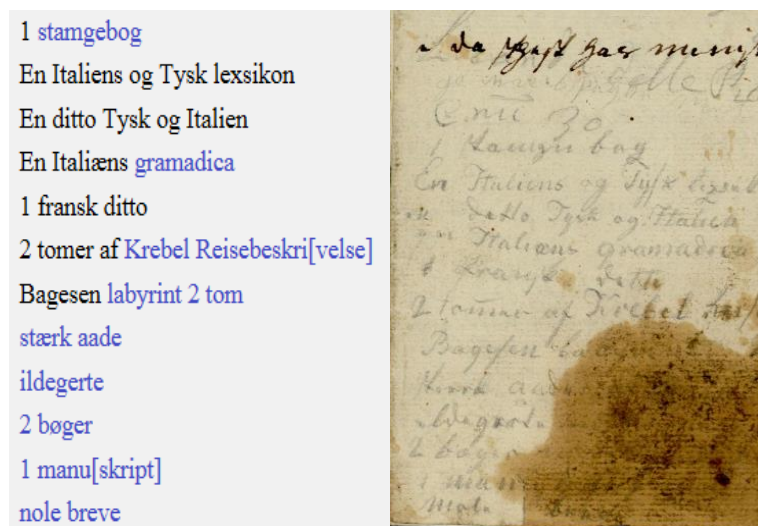 1 stamgebog
En Italiens og Tysk lexsikon
En ditto Tysk og Italien
En Italiæns gramadica
1 fransk ditto
2 tomer af Krebel Reisebeskri[velse]
Bagesen labyrint 2 tom
stærk aade
ildegerte
2 bøger
1 manu[skript]
nole breve
da har
30
1 bog
En Italiens og Tysk
ditto Tysk og Italien
Italiæns gramadica
1 Fransk ditto
2 tomer af Krebel
Bagesen
aade
2 bøger
1